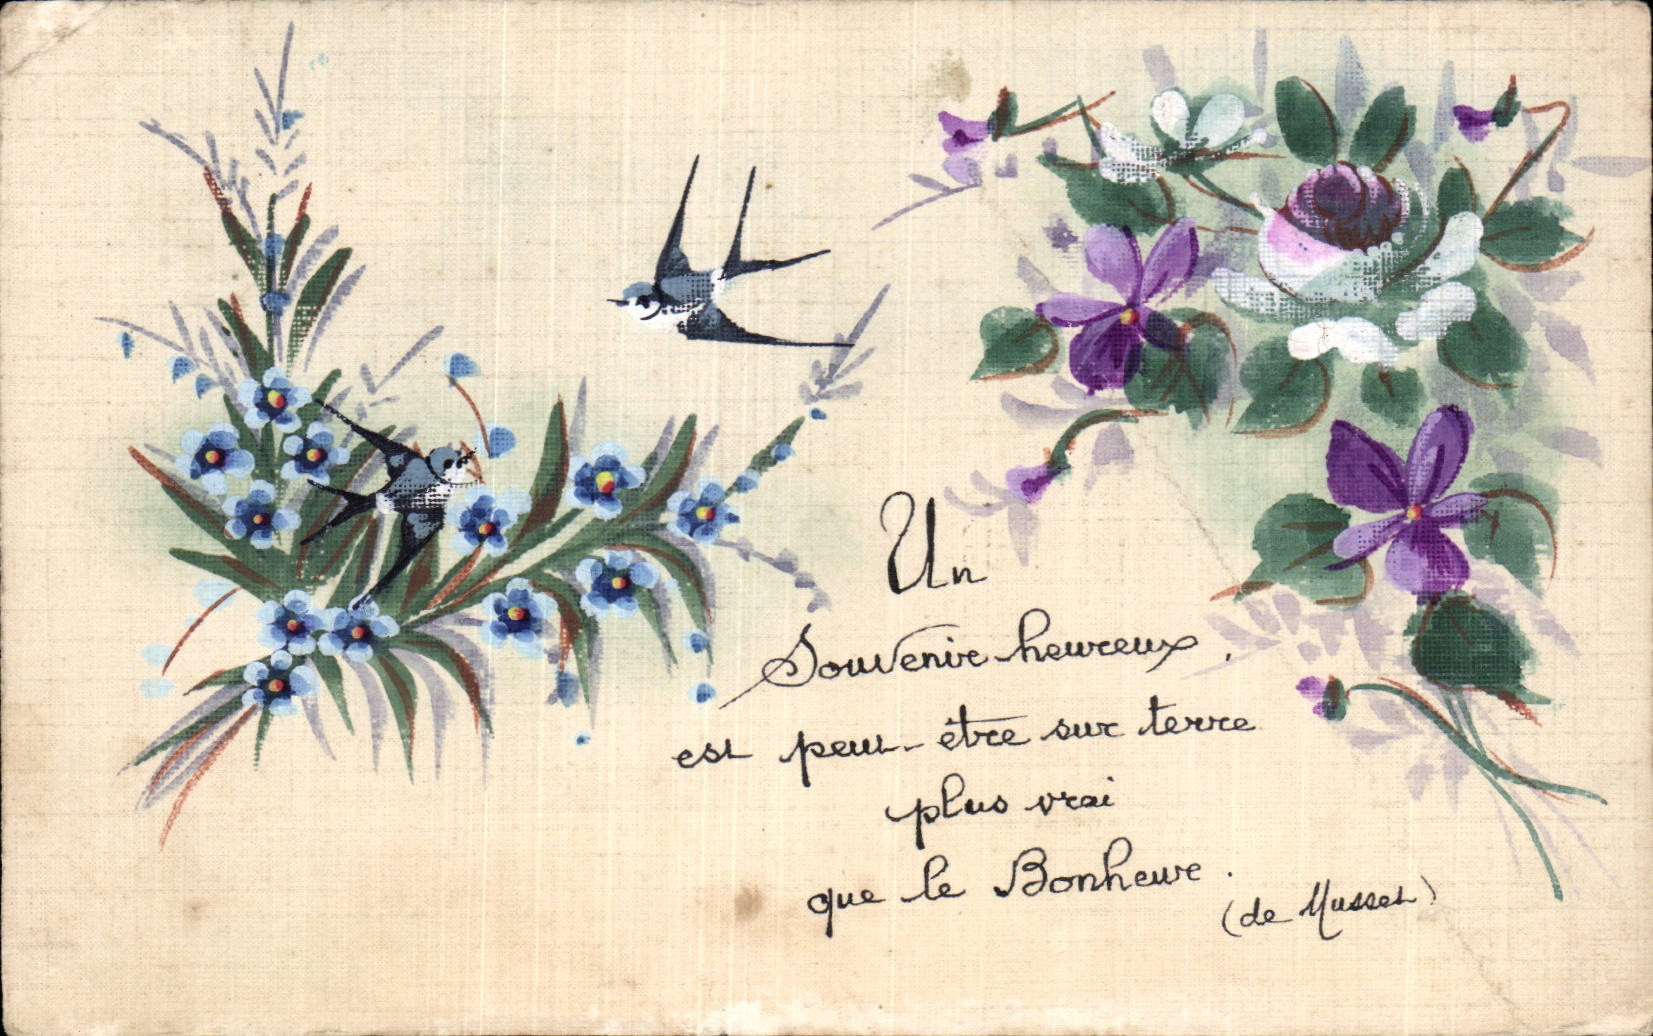 Un
Souvenir heureux.
est peut-être sur terre
plus vrai
que le Bonheur.
(de Musset)